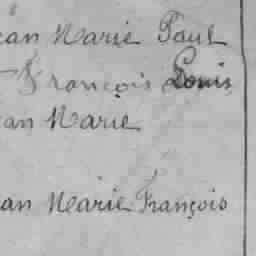 ean Marie Paul
François Louis
ean Marie
ean Marie François